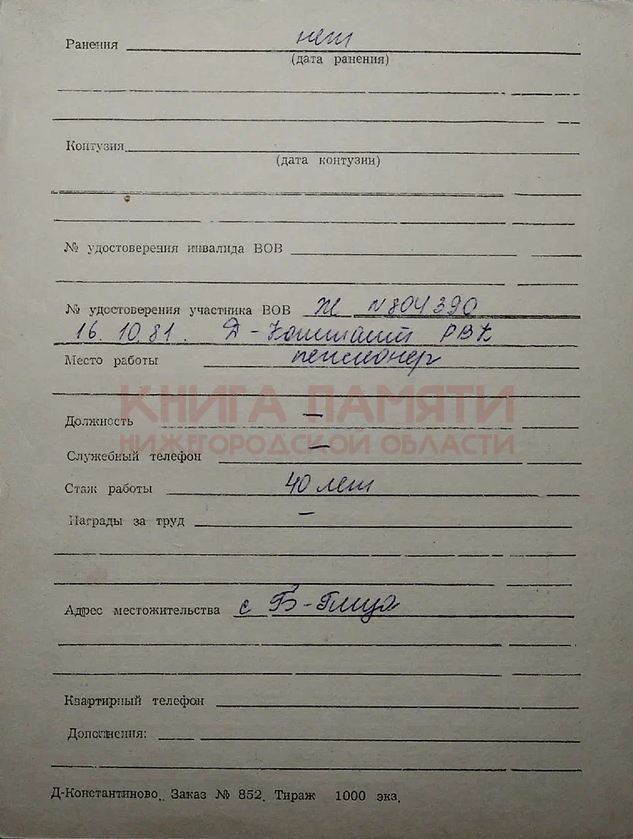 Ранения нет
(дата ранения)
Контузия
(дата контузии)
№ удостоверения инвалида ВОВ
№ удостоверения участника ВОВ Ж N 804390
16.10.81. РВК
Место работы пенсионер
КНИГА ПАМЯТИ
Должность —
НИЖЕГОРОДСКОЙ ОБЛАСТИ
Служебный телефон —
Стаж работы 40 лет
Награды за труд —
Адрес местожительства с
Квартирный телефон
Дополнения:
Д-Константиново. Заказ № 852. Тираж 1000 экз.